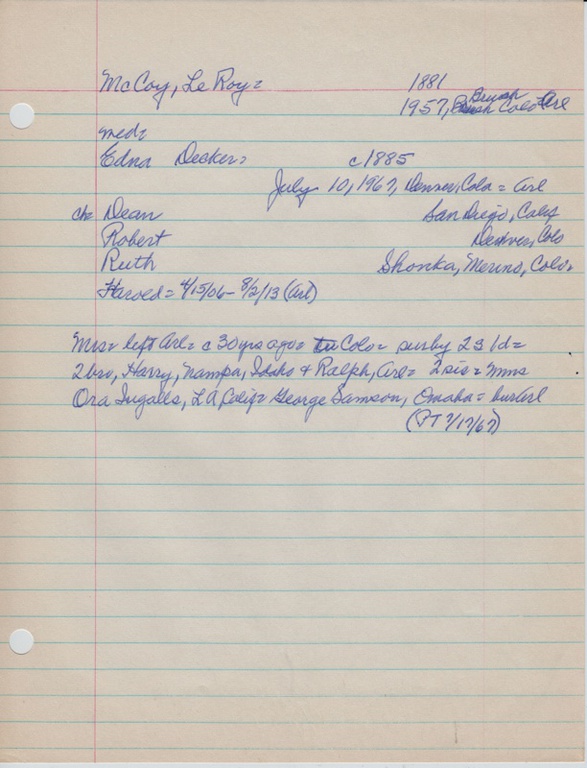 McCoy, Le Roy= 1881
Brush
1957, Brush Colo= Arl
med=
Edna Decker= c1885
July 10, 1967, Denver, Colo = Arl
ch= Dean San Diego, Calif
Robert Denver, Colo
Ruth Shonka, Merino, Colo=
Harold = 4/15/06- 8/2/13 (Arl)
Mrs= left Arl= c 30 yrs ago= Colo= surby 2s 1d=
2bro, Harry, Nampa, Idaho + Ralph, Arl= 2 sis= Mms
Ora Ingalls, LA Calif= George Samson, Omaha= burArl
(PT 7/17/67)